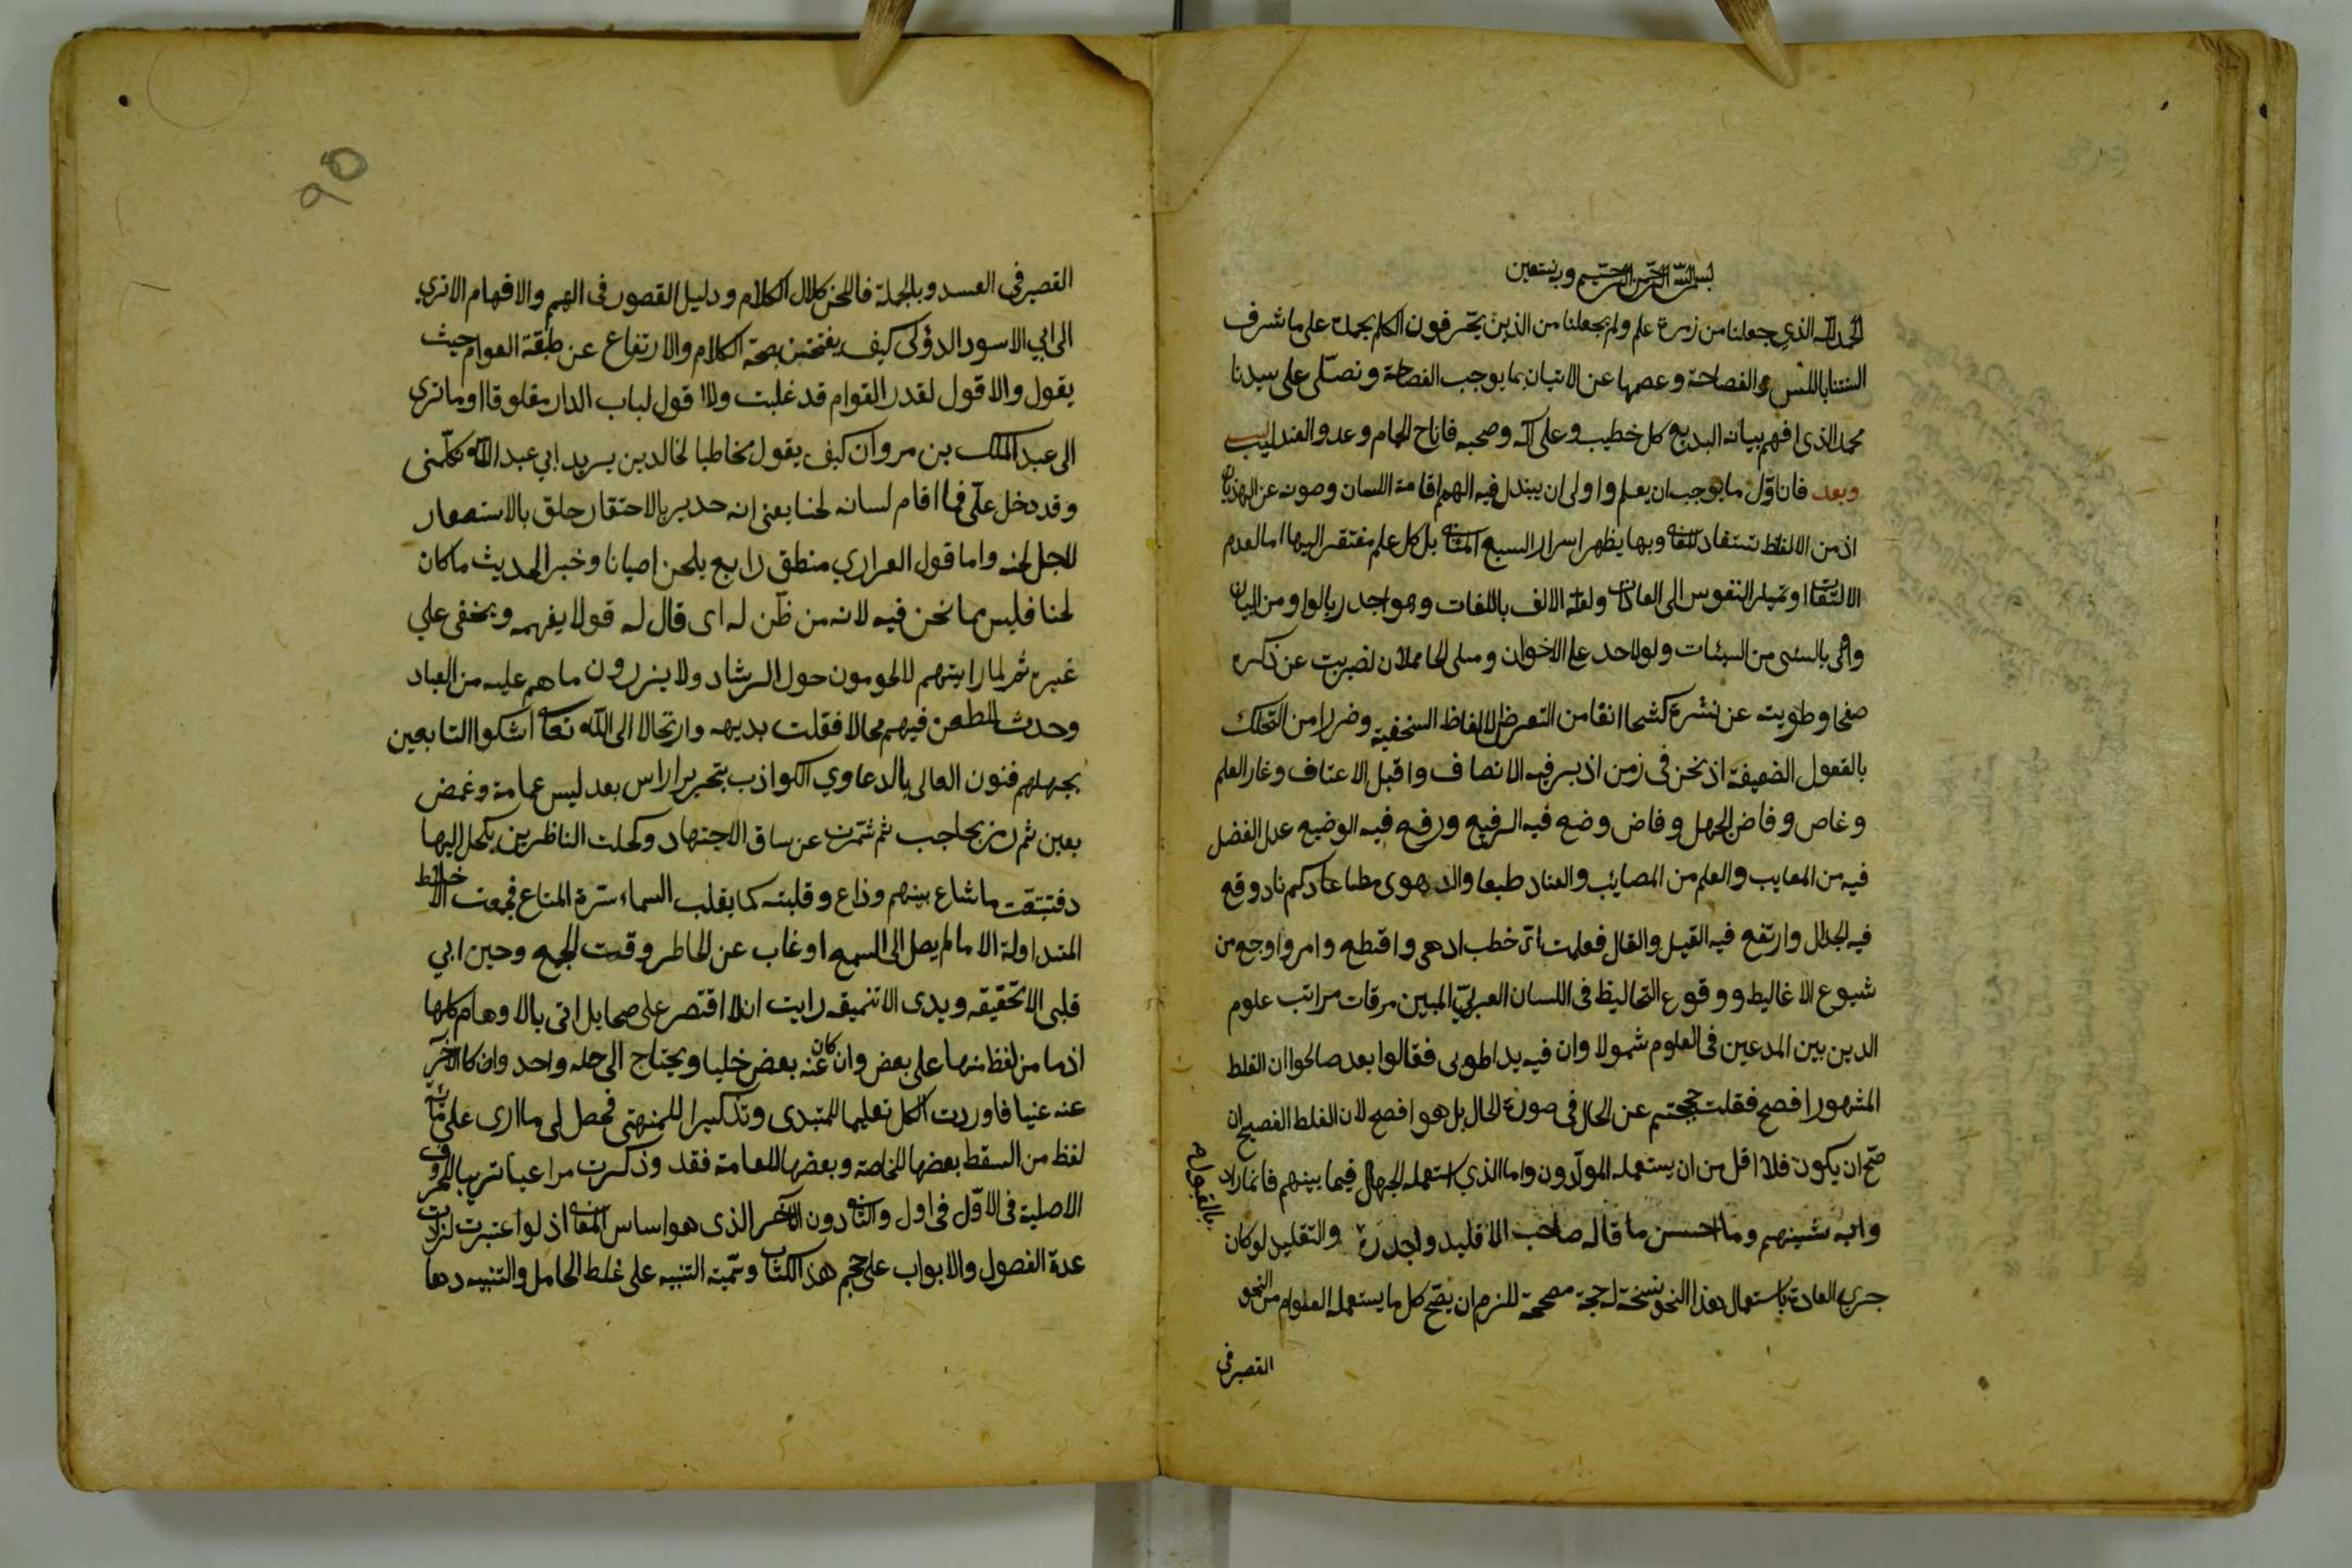 بسم الله الرحمن الرحيم وبه نستعين
الحمد لله الذي جعلنا من زمرة علم ولم يجعلنا من الذين يحرفون الكلم نحمده على ما شرف
السنتنا باللسن والفصاحة وعصمها عن الاتيان بما يوجب الفصاحة ونصلّى على سيدنا
محمد الذى افهم ببيانه البديع كل خطيب وعلى آله وصحبه فاناح الحمام وعدو العندليب
وبعد فان اوّل ما يوجب ان يعلم واولى ان يبذل فيه الهمم اقامة اللسان وصونه عن الهذيان
اذ من الالفاظ تستفاد اللغه وبها يظهر اسرار السبع المثانى بل كل علم مفتقر اليها اما لعدم
الالتفات او تميل النفوس الى العادات ولغلة الالف باللغات وهو اجدر
بالسئى من السيئات ولولا حد على الاخوان لضربت عن ذكره
صفحا وطويت عن نشره كشحا انفا من التعرض لالفاظ السخفية وضرارا من التحكك
بالقعول الضعيفة اذ نحن فى زمن اذبر فيه الانصاف واقبل الاعتاف وغار العلم
وغاص وفاض الجهل وفاض وضع فيه الرفيع ورفع فيه الوضيع عدل الفضل
فيه من المعايب والعلم من المصائب والعناد طبعا والدهوى مطاعا وكم ناد وقع
فيه الجدال وارتفع فيه القيل والقال فعلمت اىّ خطب ادهى واقطع وامر واوجع من
شيوع الاغاليط ووقوع التخاليط فى اللسان العربيّ المبين مرقات مراتب علوم
الدين بين المدعين فى العلوم شمولا وان فيه يدا طوبى فقالوا بعد صالحوا ان الغلط
المشهور افصح فقلت حجتم عن الحال فى صورة الحال بل هو افصح لان الغلط الفصيح ان
صح ان يكون فلا اقل من ان يستعمله المولّدون واما الذي استعمله الجهال فيما بينهم فانما راد
بالقبول
وا به شينهم وما احسن ما قاله صاحب الاقليد واجدره والتقليد لو كان
جرى العادة باستعمال هذا النحو نسخة لحجة مصححة للزم ان يصّح كل ما يستعمله العلوام من النحو
القصر فى
٩٥
القصر فى العسد وبالجملة فاللحن كلال الكلام ودليل القصور فى الفهم والافهام الا ترى
الى ابي الاسود الدؤلى كيف يفتخر بصحة الكلام والارتفاع عن طبقة العوام حيث
يقول ولا اقول لقدر القوام قد غلبت ولا اقول لباب الدار مغلوق او ما ترى
الى عبد الملك بن مروان كيف يقول مخاطبا لخالد بن يزيد ابي عبد الله كلّمنى
وقد دخل علىّ فما اقام لسانه لحنا يعنى انه جدير بالاحتقار حلق بالاستصغار
لاجل لحنه واما قول الفراري منطق رايع يلحن احيانا وخير الحديث ما كان
لحنا فليس مما نحن فيه لانه من ظن له اى قال له قولا يفهمه ويخفى على
غيره ثم لما رايتهم لا يحومون حول الرشاد ولا ينزلون ما هم عليه من العباد
وجدت المطعن فيهم محالا فقلت بديهه وارتجالا الى الله تعالى اشكوا التابعين
بجهلهم فنون العالى بالدعاوي الكواذب بتحرير راس بعد لبس عمامة وغمض
بعين ثم رمز بحاجب ثم شمّرت عن ساق الاجتهاد وكحلت الناظرين بكحل اليها
د فتتبعت ما شاع بينهم وذاع وقلبته كما يقلب السماء سترة المتاع فجمعت الالفاظ
المتداولة الا ما لم يصل الى السمع او غاب عن الخاطر وقت الجمع وحين ابي
قلبى الا تحقيقه ويدى الا تنميقه رايت ان لا اقتصر على صحا بل اتى بالاوهام كلها
اذ ما من لفظ منها على بعض وان كان عنه بعض خليا ويحتاج الى حله واحد وان كان الآخر
عنه غنيا فاوردت الكل تعليما للمبتدى وتذكيرا للمنتهى فحصل لى ما ارى على مائة
لفظ من السقط بعضها للخاصة وبعضها للعامة فقد وذكرت مراعيا ترتيب الحروف
الاصلية فى الاوّل فى اول والثانى دون الآخر الذى هو اساس المغا اذ لو اعتبرت لزادت
عدة الفصول والابواب على حجم هذا الكتاب وتمية التنبيه على غلط الخامل والتنبيه دها